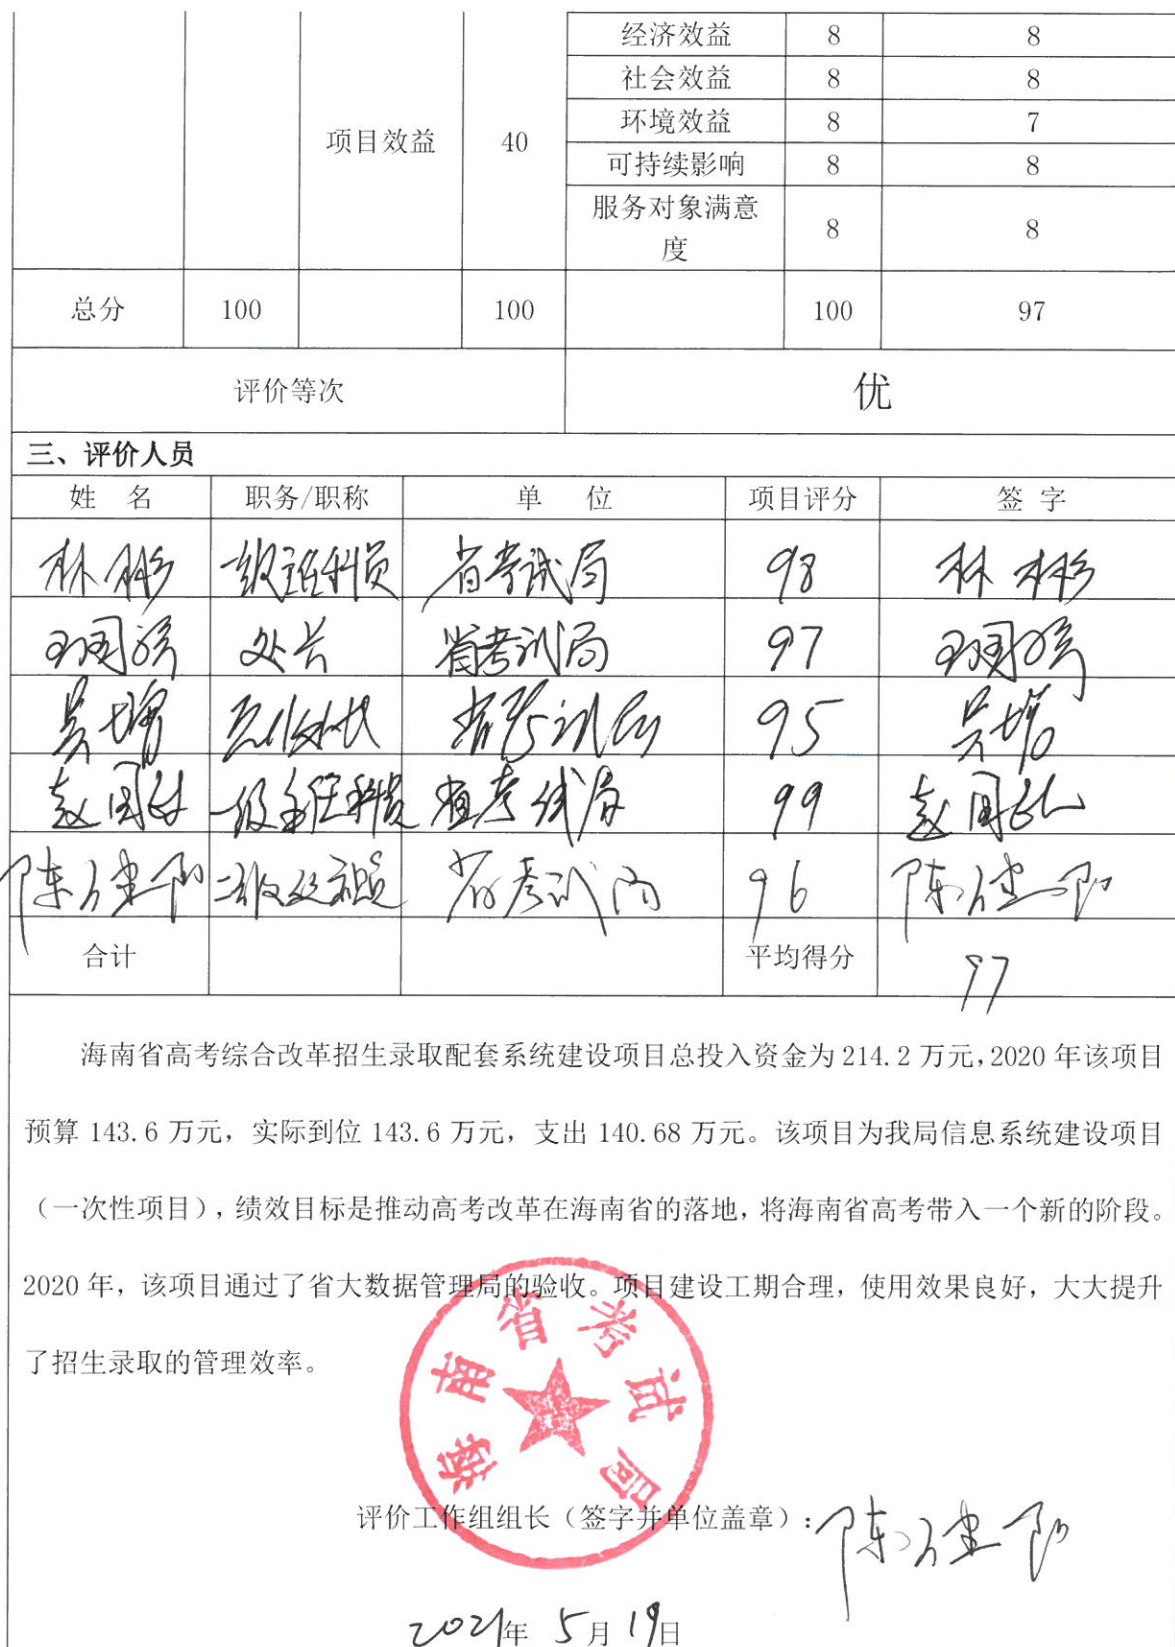 经济效益 8 8
社会效益 8 8
项目效益 40 环境效益 8 7
可持续影响 8 8
服务对象满意
度 8 8
总分 100 100 100 97
评价等次 优
三、评价人员
姓 名 职务/职称 单 位 项目评分 签 字
林彬 一级主任科员 省考试局 98 林彬
处长 省考试局 97
吴增 省考试局 95 吴增
赵国 一级主任科员 省考试局 99 赵国
陈建 省考试局 96 陈建
合计 平均得分 97
海南省高考综合改革招生录取配套系统建设项目总投入资金为214.2万元,2020年该项目
预算143.6万元，实际到位143.6万元，支出140.68万元。该项目为我局信息系统建设项目
（一次性项目），绩效目标是推动高考改革在海南省的落地，将海南省高考带入一个新的阶段。
2020年，该项目通过了省大数据管理局的验收。项目建设工期合理，使用效果良好，大大提升
了招生录取的管理效率。
海南省考试局
评价工作组组长（签字并单位盖章）：陈建
2021年5月19日